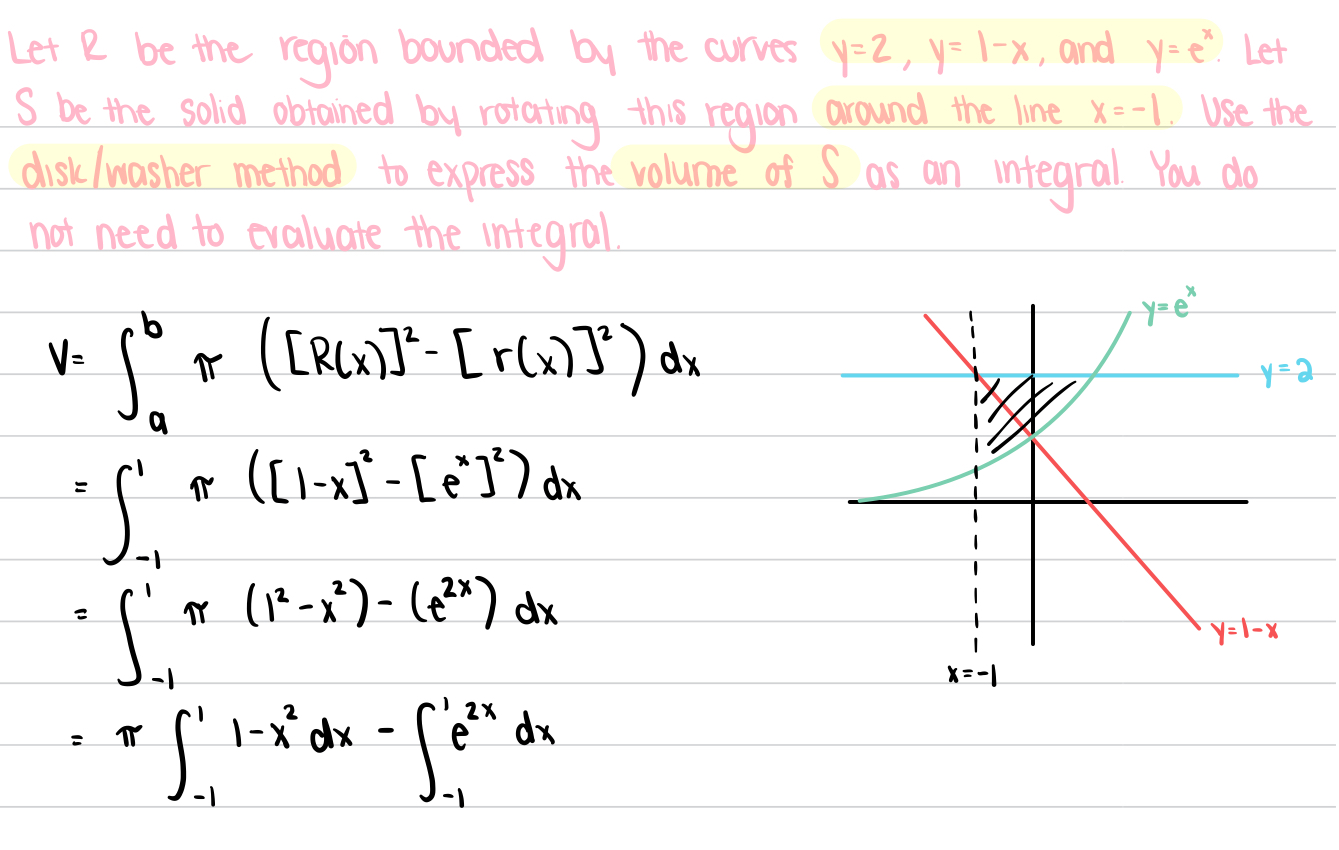 Let R be the region bounded by the curves y=2, y=1-x, and y=eˣ. Let
S be the solid obtained by rotating this region around the line x=-1. Use the
disk/washer method to express the volume of S as an integral. You do
not need to evaluate the integral.
V= ∫ₐᵇ π ([R(x)]² - [r(x)]²) dx
= ∫₋₁¹ π ([1-x]² - [eˣ]²) dx
= ∫₋₁¹ π (1²-x²) - (e²ˣ) dx
= π ∫₋₁¹ 1-x² dx - ∫₋₁¹ e²ˣ dx
y=eˣ
y=2
y=1-x
x=-1